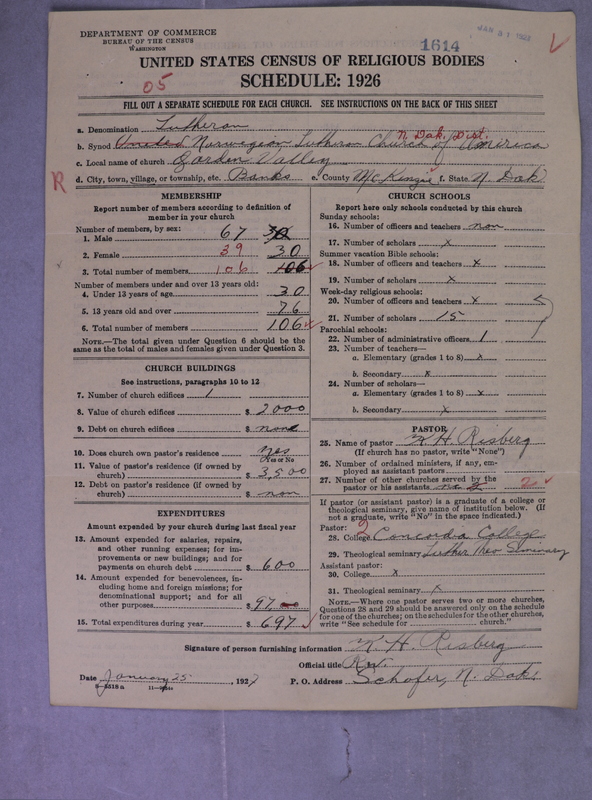 DEPARTMENT OF COMMERCE
BUREAU OF THE CENSUS
WASHINGTON
1614
UNITED STATES CENSUS OF RELIGIOUS BODIES
SCHEDULE: 1926
05
FILL OUT A SEPARATE SCHEDULE FOR EACH CHURCH. SEE INSTRUCTIONS ON THE BACK OF THIS SHEET
a. Denomination Lutheran
N. Dak. Dist.
b. Synod United Norwegian Lutheran Church of America
c. Local name of church Garden Valley
R d. City, town, village, or township, etc. Banks e. County McKenzie f. State N. Dak
MEMBERSHIP
Report number of members according to definition of
member in your church
Number of members, by sex:
1. Male 67
2. Female 39 30
3. Total number of members 106 106
Number of members under and over 13 years old:
4. Under 13 years of age 30
5. 13 years old and over 76
6. Total number of members 106
NOTE.—The total given under Question 6 should be
same as the total of males and females given under Question 3.
CHURCH BUILDINGS
See instructions, paragraphs 10 to 12
7. Number of church edifices 1
8. Value of church edifices $ 2000
9. Debt on church edifices $ none
10. Does church own pastor's residence yes
Yes or No
11. Value of pastor's residence (if owned by
church) $ 3500
12. Debt on pastor's residence (if owned by
church) $ non
EXPENDITURES
Amount expended by your church during last fiscal year
13. Amount expended for salaries, repairs,
and other running expenses; for im-
provements or new buildings; and for
payments on church debt $ 600
14. Amount expended for benevolences, in-
cluding home and foreign missions; for
denominational support; and for all
other purposes $ 97
15. Total expenditures during year $ 697
CHURCH SCHOOLS
Report here only schools conducted by this church
Sunday schools:
16. Number of officers and teachers non
17. Number of scholars x
Summer vacation Bible schools:
18. Number of officers and teachers x
19. Number of scholars x
Week-day religious schools:
20. Number of officers and teachers x
21. Number of scholars 15
Parochial schools:
22. Number of administrative officers 1
23. Number of teachers—
a. Elementary (grades 1 to 8) x
b. Secondary x
24. Number of scholars—
a. Elementary (grades 1 to 8) x
b. Secondary x
PASTOR
25. Name of pastor H. Risberg
(If church has no pastor, write "None")
26. Number of ordained ministers, if any, em-
ployed as assistant pastors
27. Number of other churches served by the
pastor or his assistants 2
If pastor (or assistant pastor) is a graduate of a college or
theological seminary, give name of institution below. (If
not a graduate, write "No" in the space indicated.)
Pastor: 2
28. College Concordia College
29. Theological seminary Luther Theo Seminary
Assistant pastor:
30. College x
31. Theological seminary x
NOTE.—Where one pastor serves two or more churches,
Questions 28 and 29 should be answered only on the schedule
for one of the churches; on the schedules for the other churches,
write "See schedule for church."
Signature of person furnishing information H. Risberg
Official title Rev.
Date January 25, 1927 P. O. Address Schafer, N. Dak.